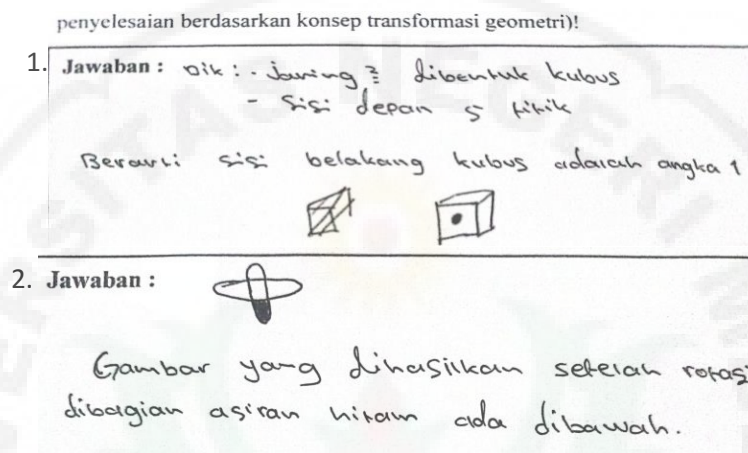 penyelesaian berdasarkan konsep transformasi geometri)!
1. Jawaban : Dik : - Jaring² dibentuk kubus
- Sisi depan 5 titik
Berarti sisi belakang kubus adalah angka 1
2. Jawaban :
Gambar yang dihasilkan setelah rotasi
dibagian asiran hitam ada dibawah.